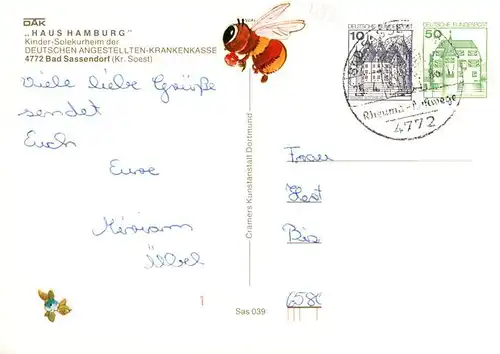 DAK
„HAUS HAMBURG"
Kinder-Solekurheim der
DEUTSCHEN ANGESTELLTEN-KRANKENKASSE
4772 Bad Sassendorf (Kr. Soest)
Viele liebe Grüße
sendet
Euch
Eure
Miriam
Cramers Kunstanstalt Dortmund
1
Sas 039
DEUTSCHE BUNDESPOST
10
DEUTSCHE BUNDESPOST
50
Rheuma
4772
Frau